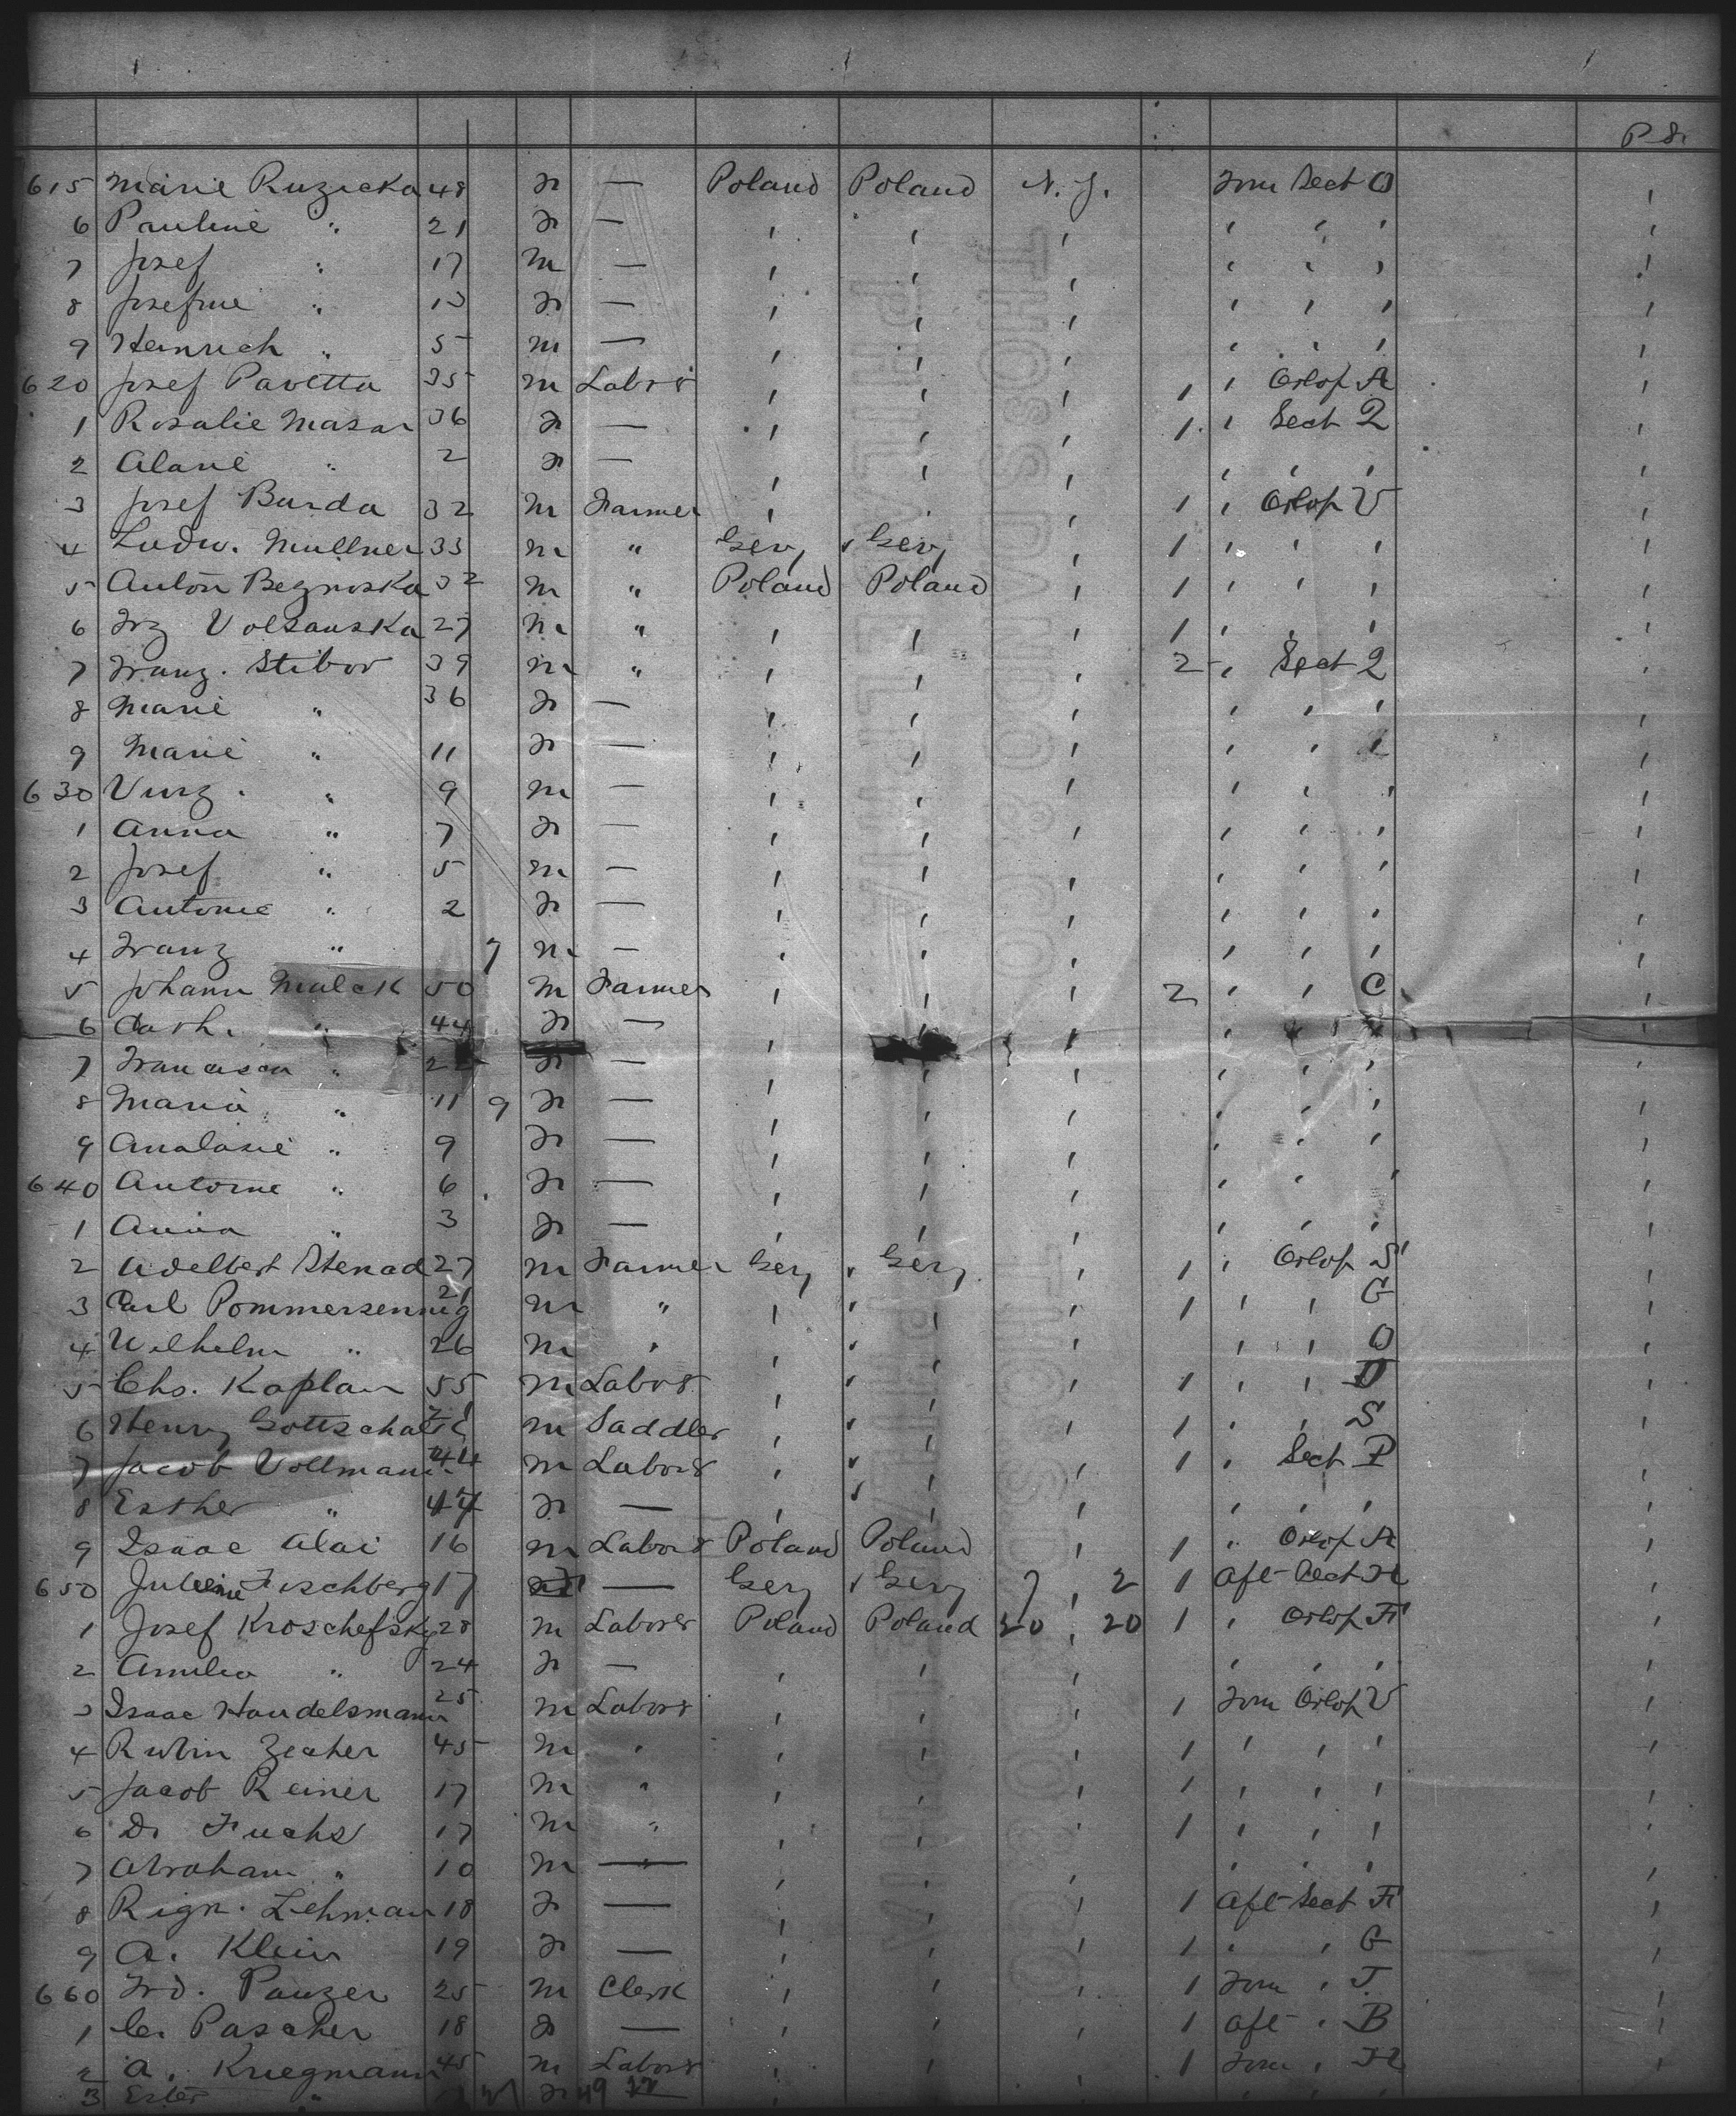 P.S.
615 Marie Ruzicka 48 F — Poland Poland N.Y. Forw Sect O
6 Pauline " 21 F — ' ' ' ' ' ' '
7 Josef " 17 M — ' ' ' ' ' ' '
8 Josefine " 13 F — ' ' ' ' ' ' '
9 Heinrich " 5 M — ' ' ' ' ' ' '
620 Josef Pavetta 35 M Labor ' ' ' 1 ' Orlop A '
1 Rosalie Masar 36 F — ' ' ' 1 ' Sect Q '
2 " 2 F — ' ' ' ' ' ' '
3 Josef Burda 32 M Farmer ' ' ' 1 ' Orlop V '
4 Ludw. Mullner 33 M " Gery Gery ' 1 ' ' ' '
5 Anton 32 M " Poland Poland ' 1 ' ' ' '
6 Frz 27 M " ' ' ' 1 ' ' ' '
7 Franz. Stibor 39 M " ' ' ' 2 ' Sect Q '
8 Marie " 36 F — ' ' ' ' ' ' '
9 Marie " 11 F — ' ' ' ' ' ' '
630 Vinz. " 9 M — ' ' ' ' ' ' '
1 Anna " 7 F — ' ' ' ' ' ' '
2 Josef " 5 M — ' ' ' ' ' ' '
3 Antonie " 2 F — ' ' ' ' ' ' '
4 Franz " 7 M — ' ' ' ' ' ' '
5 Johann Mulck 50 M Farmer ' ' ' 2 ' ' C '
6 Cath. " 44 F — ' ' ' ' ' ' '
7 Francisca " F — ' ' ' ' ' ' '
8 Maria " 11 9 F — ' ' ' ' ' ' '
9 " 9 F — ' ' ' ' ' ' '
640 Antonie " 6 F — ' ' ' ' ' ' '
1 Anna " 3 F — ' ' ' ' ' ' '
2 Adelbert Stenad 27 M Farmer Gery Gery ' 1 ' Orlop S '
3 Carl Pommersennig 21 M " ' ' ' 1 ' ' G '
4 Wilhelm " 26 M ' ' ' ' ' ' O '
5 Chs. Kaplan 55 M Labor ' ' ' 1 ' ' '
6 Henry Gottschalk M Saddler ' ' ' 1 ' ' S '
7 Jacob Vollmann 44 M Labor ' ' ' 1 ' Sect P '
8 Esther " F — ' ' ' ' ' ' '
9 Isaac Alai 16 M Labor Poland Poland ' 1 ' Orlop A '
650 Fischberg 17 F — Gery Gery ' 2 1 Aft Sect H '
1 Josef Kroschefsky 28 M Laborer Poland Poland 20 ' 20 1 ' Orlop F '
2 Amilia " 24 F — ' ' ' ' ' ' '
3 Isaac Handelsmann 25 M Labor ' ' ' 1 Forw Orlop V '
4 Rubin Zecher 45 M ' ' ' ' 1 ' ' ' '
5 Jacob Reiner 17 M ' ' ' ' 1 ' ' ' '
6 D. Fuchs 17 M " ' ' ' 1 ' ' ' '
7 Abraham " 10 M — ' ' ' ' ' ' '
8 Lehman 18 F — ' ' ' 1 Aft Sect F '
9 A. Klein 19 F — ' ' ' 1 ' ' G '
660 Frd. Panzer 25 M Clerk ' ' ' 1 Forw ' T '
1 C. Pascher 18 F — ' ' ' 1 Aft ' B '
2 A. Kriegmann 45 M Labor ' ' ' 1 Forw ' H '
3 Ester " F 49